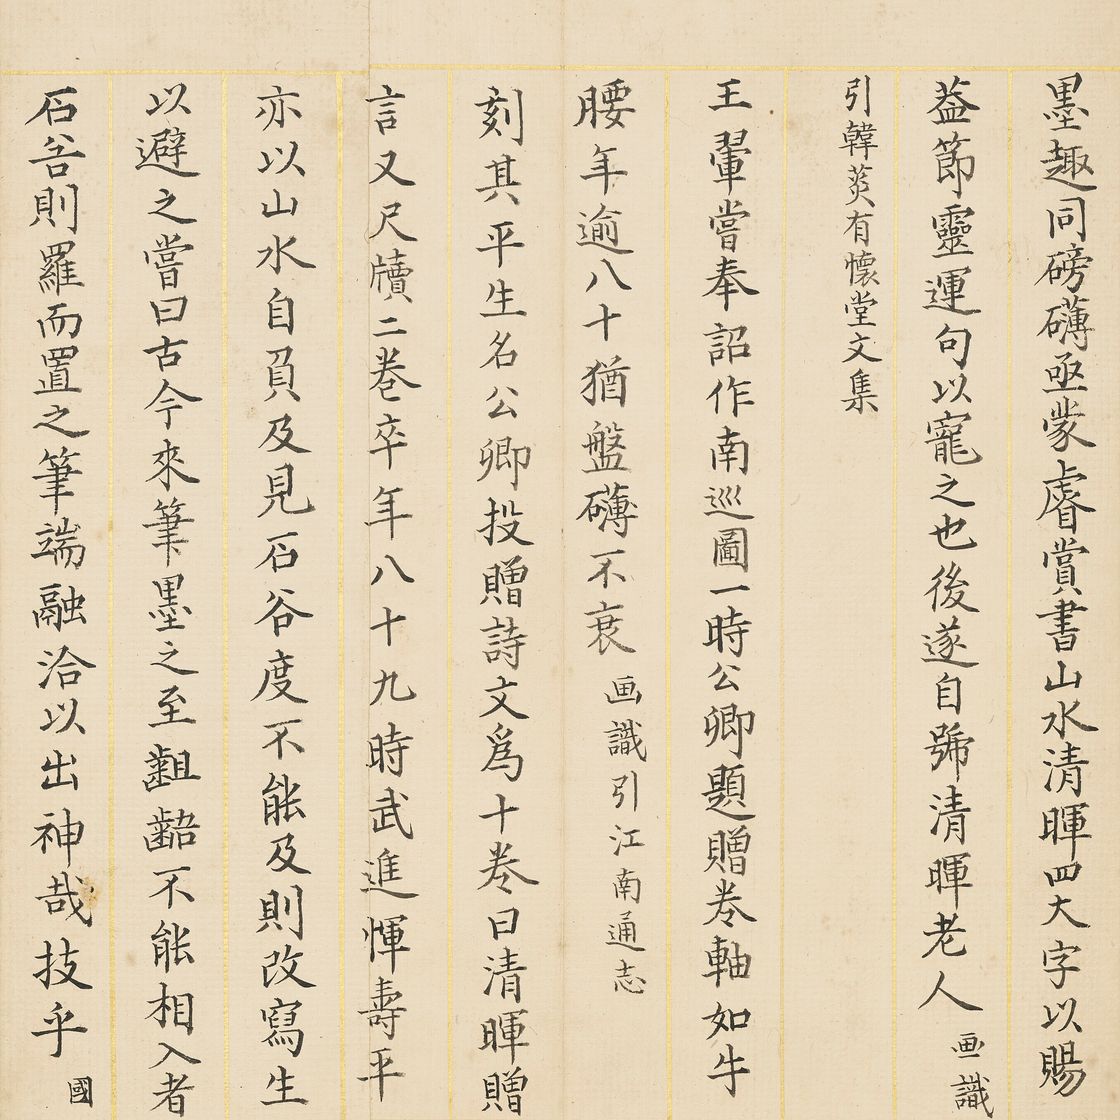 墨趣同磅礴亟蒙睿賞書山水清暉四大字以賜
葢節靈運句以寵之也後遂自號清暉老人画識
引韓菼有懷堂文集
王翬嘗奉詔作南巡圖一時公卿題贈卷軸如牛
腰年逾八十猶盤礴不衰画識引江南通志
刻其平生名公卿投贈詩文爲十卷曰清暉贈
言又尺牘二卷卒年八十九時武進惲壽平
亦以山水自負及見石谷度不能及則改寫生
以避之嘗曰古今來筆墨之至齟齬不能相入者
石谷則羅而置之筆端融洽以出神哉技乎國